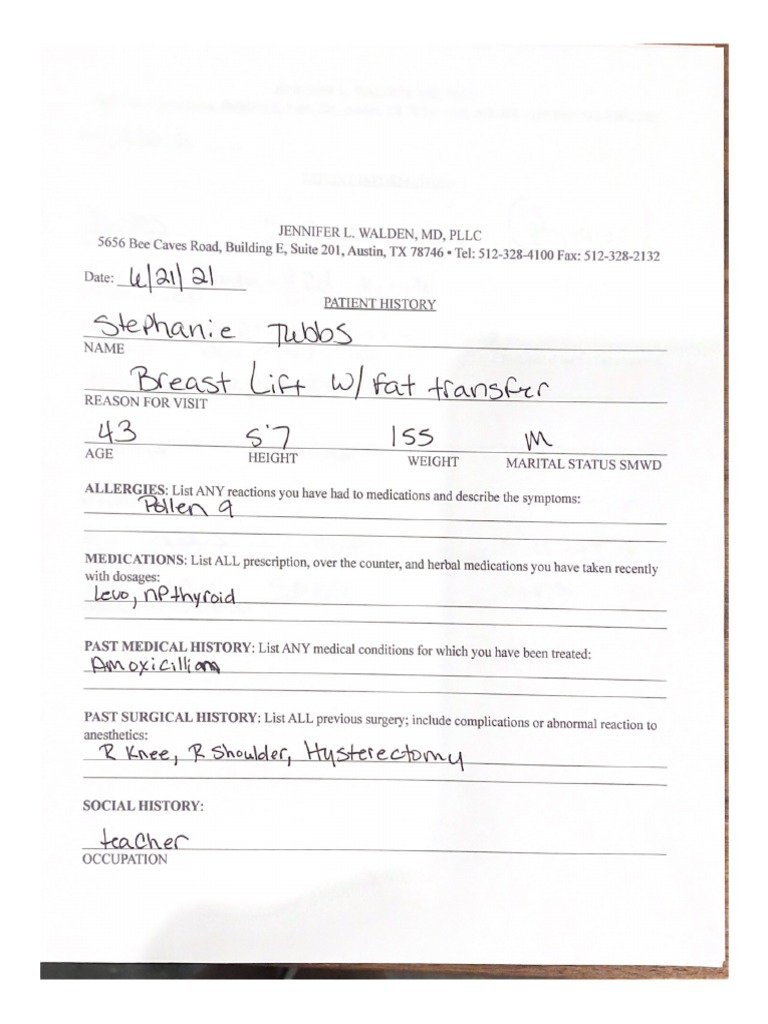 JENNIFER L. WALDEN, MD, PLLC
5656 Bee Caves Road, Building E, Suite 201, Austin, TX 78746 • Tel: 512-328-4100 Fax: 512-328-2132
Date: 6/21/21
PATIENT HISTORY
Stephanie Tubbs
NAME
Breast Lift w/ fat transfer
REASON FOR VISIT
43 5'7 155 M
AGE HEIGHT WEIGHT MARITAL STATUS SMWD
ALLERGIES: List ANY reactions you have had to medications and describe the symptoms:
Pollen
MEDICATIONS: List ALL prescription, over the counter, and herbal medications you have taken recently
with dosages:
Levo, NP thyroid
PAST MEDICAL HISTORY: List ANY medical conditions for which you have been treated:
Amoxicillian
PAST SURGICAL HISTORY: List ALL previous surgery; include complications or abnormal reaction to
anesthetics:
R Knee, R Shoulder, Hysterectomy
SOCIAL HISTORY:
teacher
OCCUPATION